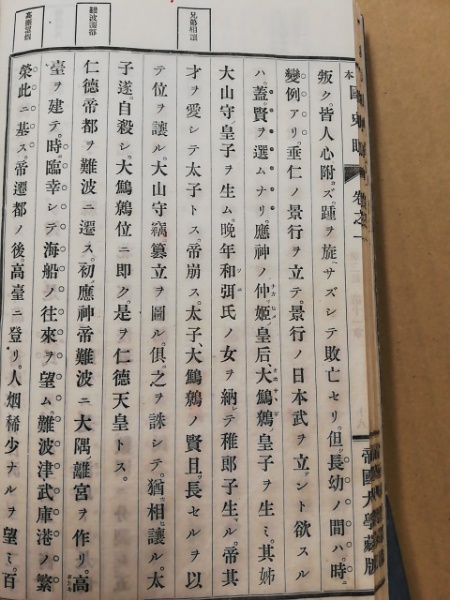 本國史眼 卷之一
帝國大學藏版
叛ク。皆人心附カズ。踵ヲ旋サズシテ敗亡セリ。但長幼ノ間ハ。時ニ
變例アリ。垂仁ノ景行ヲ立テ。景行ノ日本武ヲ立ント欲スル
ハ。蓋賢ヲ選ムナリ。應神ノ仲姬皇后、大鷦鷯皇子ヲ生ミ。其姊
大山守皇子ヲ生ム。晚年和弭氏ノ女ヲ納テ稚郎子生ル。帝其
才ヲ愛シテ太子トス。帝崩ス。太子、大鷦鷯ノ賢且長セルヲ以
テ位ヲ讓ル。大山守竊ニ篡立ヲ圖ル。俱ニ之ヲ誅シテ。猶相讓ル。太
子遂ニ自殺シ。大鷦鷯位ニ卽ク。是ヲ仁德天皇トス。
仁德帝都ヲ難波ニ遷ス。初應神帝難波ニ大隅離宮ヲ作リ。高
臺ヲ建テ。時ニ臨幸シテ海船ノ往來ヲ望ム。難波津武庫港ノ繁
榮此ニ基ス。帝遷都ノ後。高臺ニ登リ。人烟稀少ナルヲ望ミ。百
兄弟相讓
難波遷都